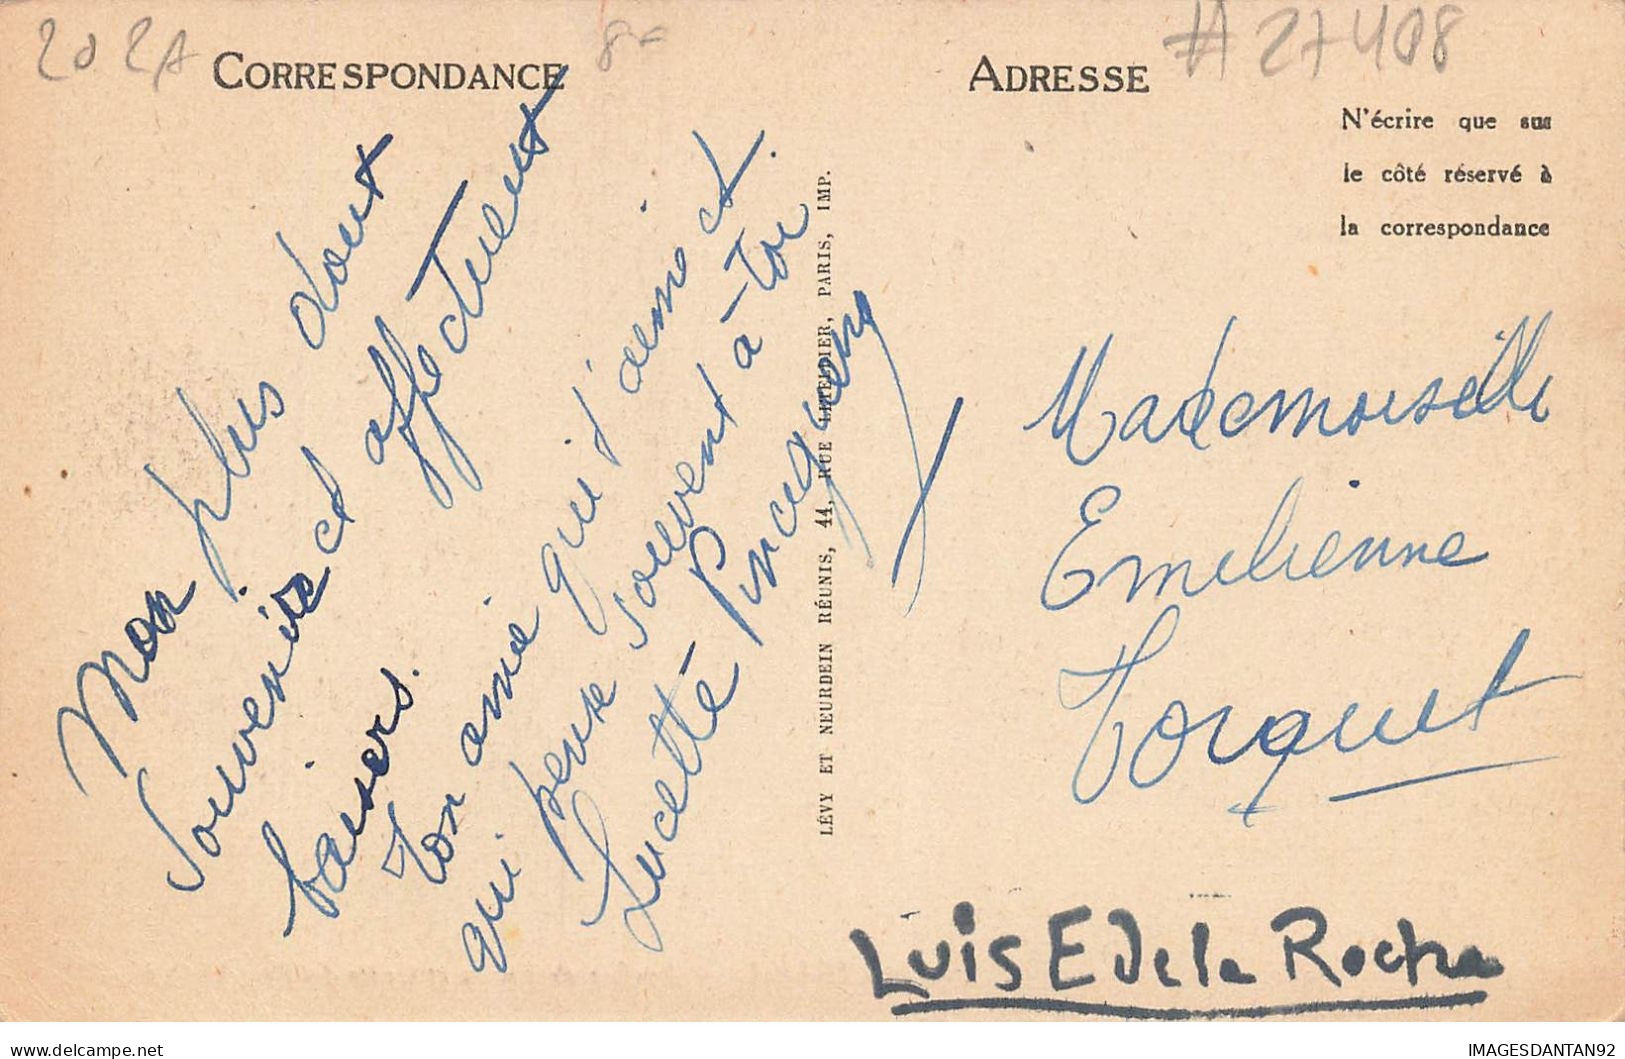 202A
8-
# 27408
CORRESPONDANCE
ADRESSE
N'écrire que sur
le côté réservé à
la correspondance
Mon plus doux
souvenir et affectueux
baisers.
Ton amie qui t'aime et
qui pense souvent à toi.
Lucette
LÉVY ET NEURDEIN RÉUNIS, 44, RUE LETELLIER, PARIS, IMP.
Mademoiselle
Emilienne
Torquet
Luis E de la Rocha
delcampe.net
IMAGESDANTAN92